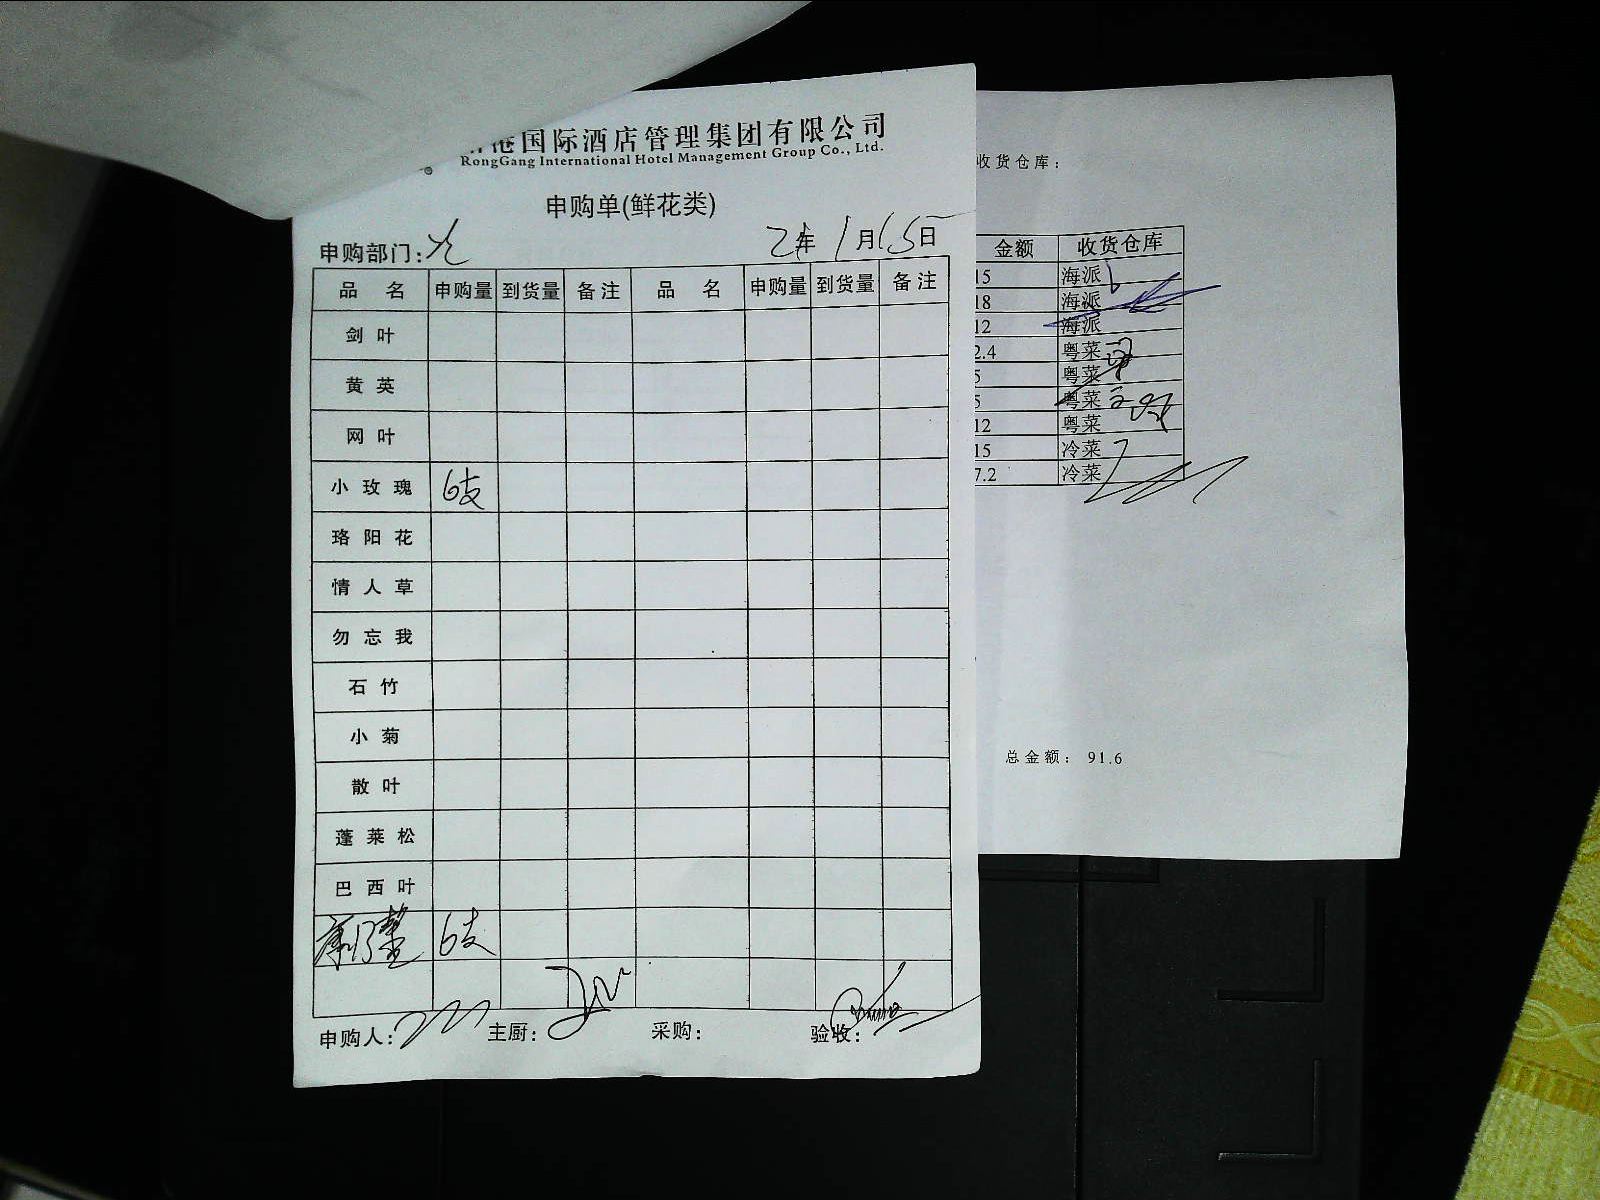 港国际酒店管理集团有限公司
RongGang International Hotel Management Group Co., Ltd.
申购单(鲜花类)
申购部门: 年 1月15日
品名 申购量 到货量 备注 品名 申购量 到货量 备注
剑叶
黄英
网叶
小玫瑰 6支
珞阳花
情人草
勿忘我
石竹
小菊
散叶
蓬莱松
巴西叶
康乃馨 6支
申购人: 主厨: 采购: 验收:
收货仓库:
金额 收货仓库
15 海派
18 海派
12 海派
2.4 粤菜
5 粤菜
5 粤菜
12 粤菜
15 冷菜
7.2 冷菜
总金额: 91.6